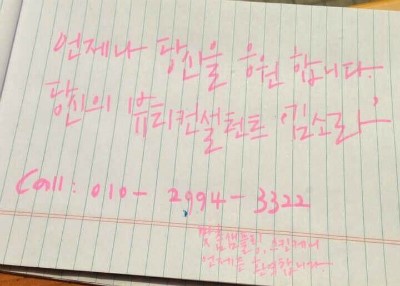 언제나 당신을 응원 합니다.
당신의 뷰티컨설턴트 '김소라'
Call : 010 - 2994 - 3322
맞춤샘플링,
언제든 환영합니다.